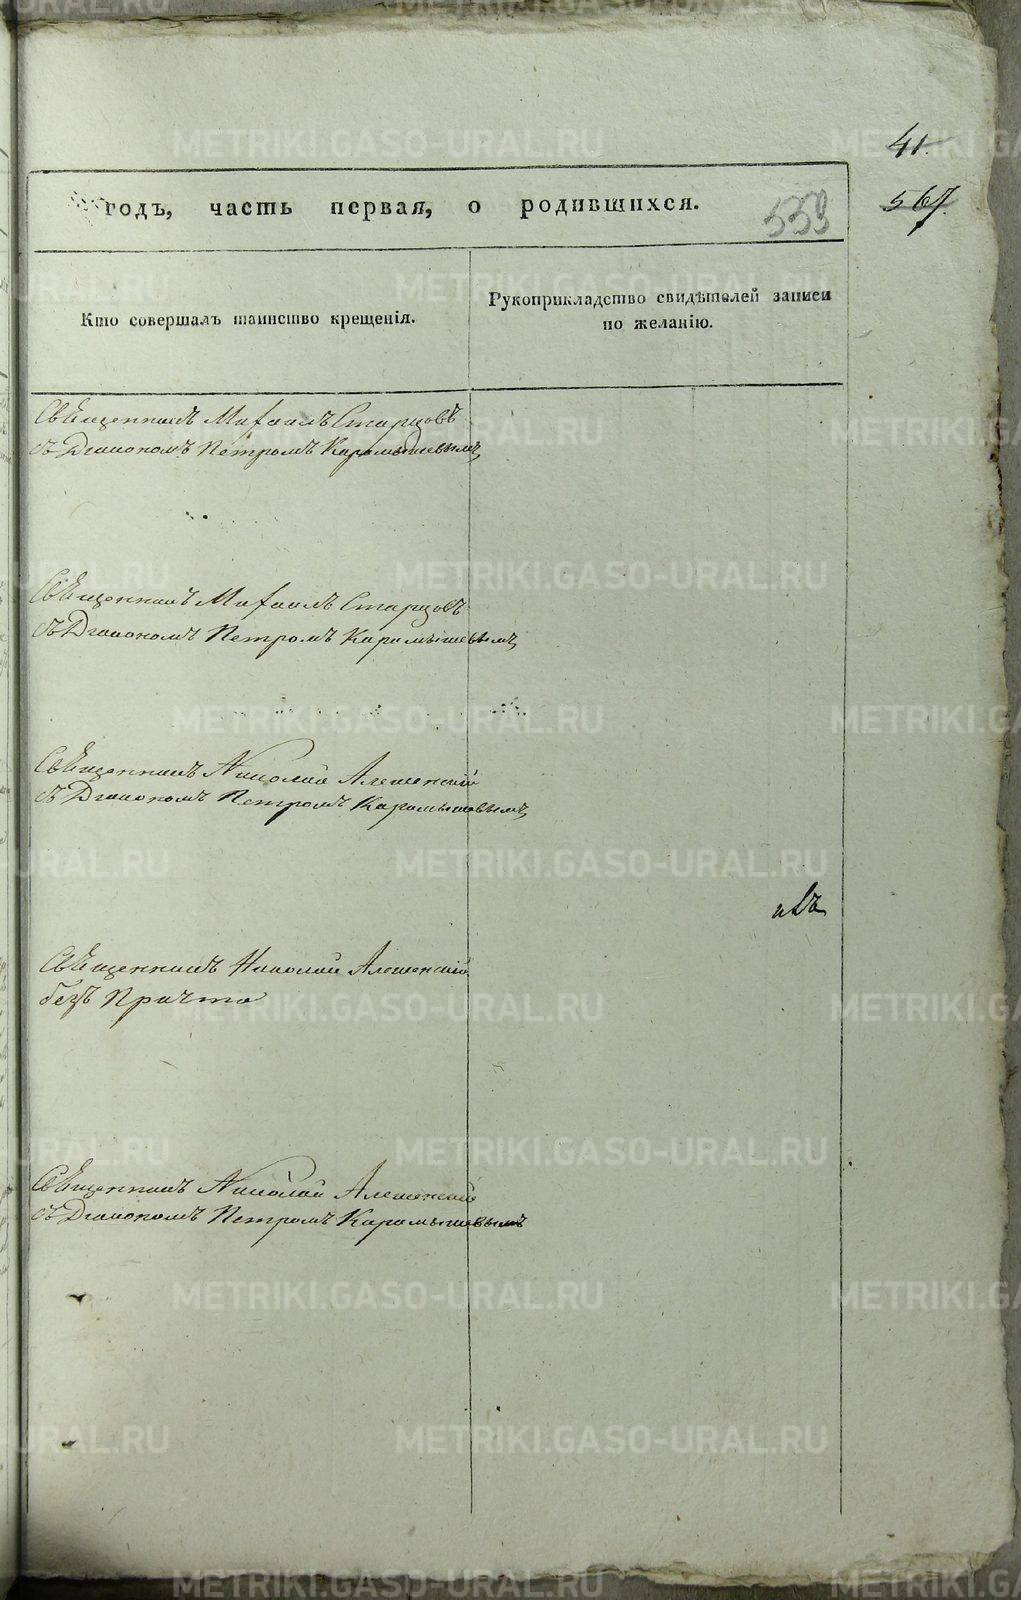 41.
годъ, часть первая, о родившихся.
567.
Кто совершалъ таинство крещенія.
Рукоприкладство свидѣтелей записи
по желанію.
Священникъ Михаилъ Старцовъ
съ Діакономъ Петромъ Карамышевымъ
Священникъ Михаилъ Старцовъ
съ Діакономъ Петромъ Карамышевымъ
Священникъ Николай
съ Діакономъ Петромъ Карамышевымъ
Священникъ Николай
безъ Причта
Священникъ Николай
съ Діакономъ Петромъ Карамышевымъ
METRIKI.GASO-URAL.RU